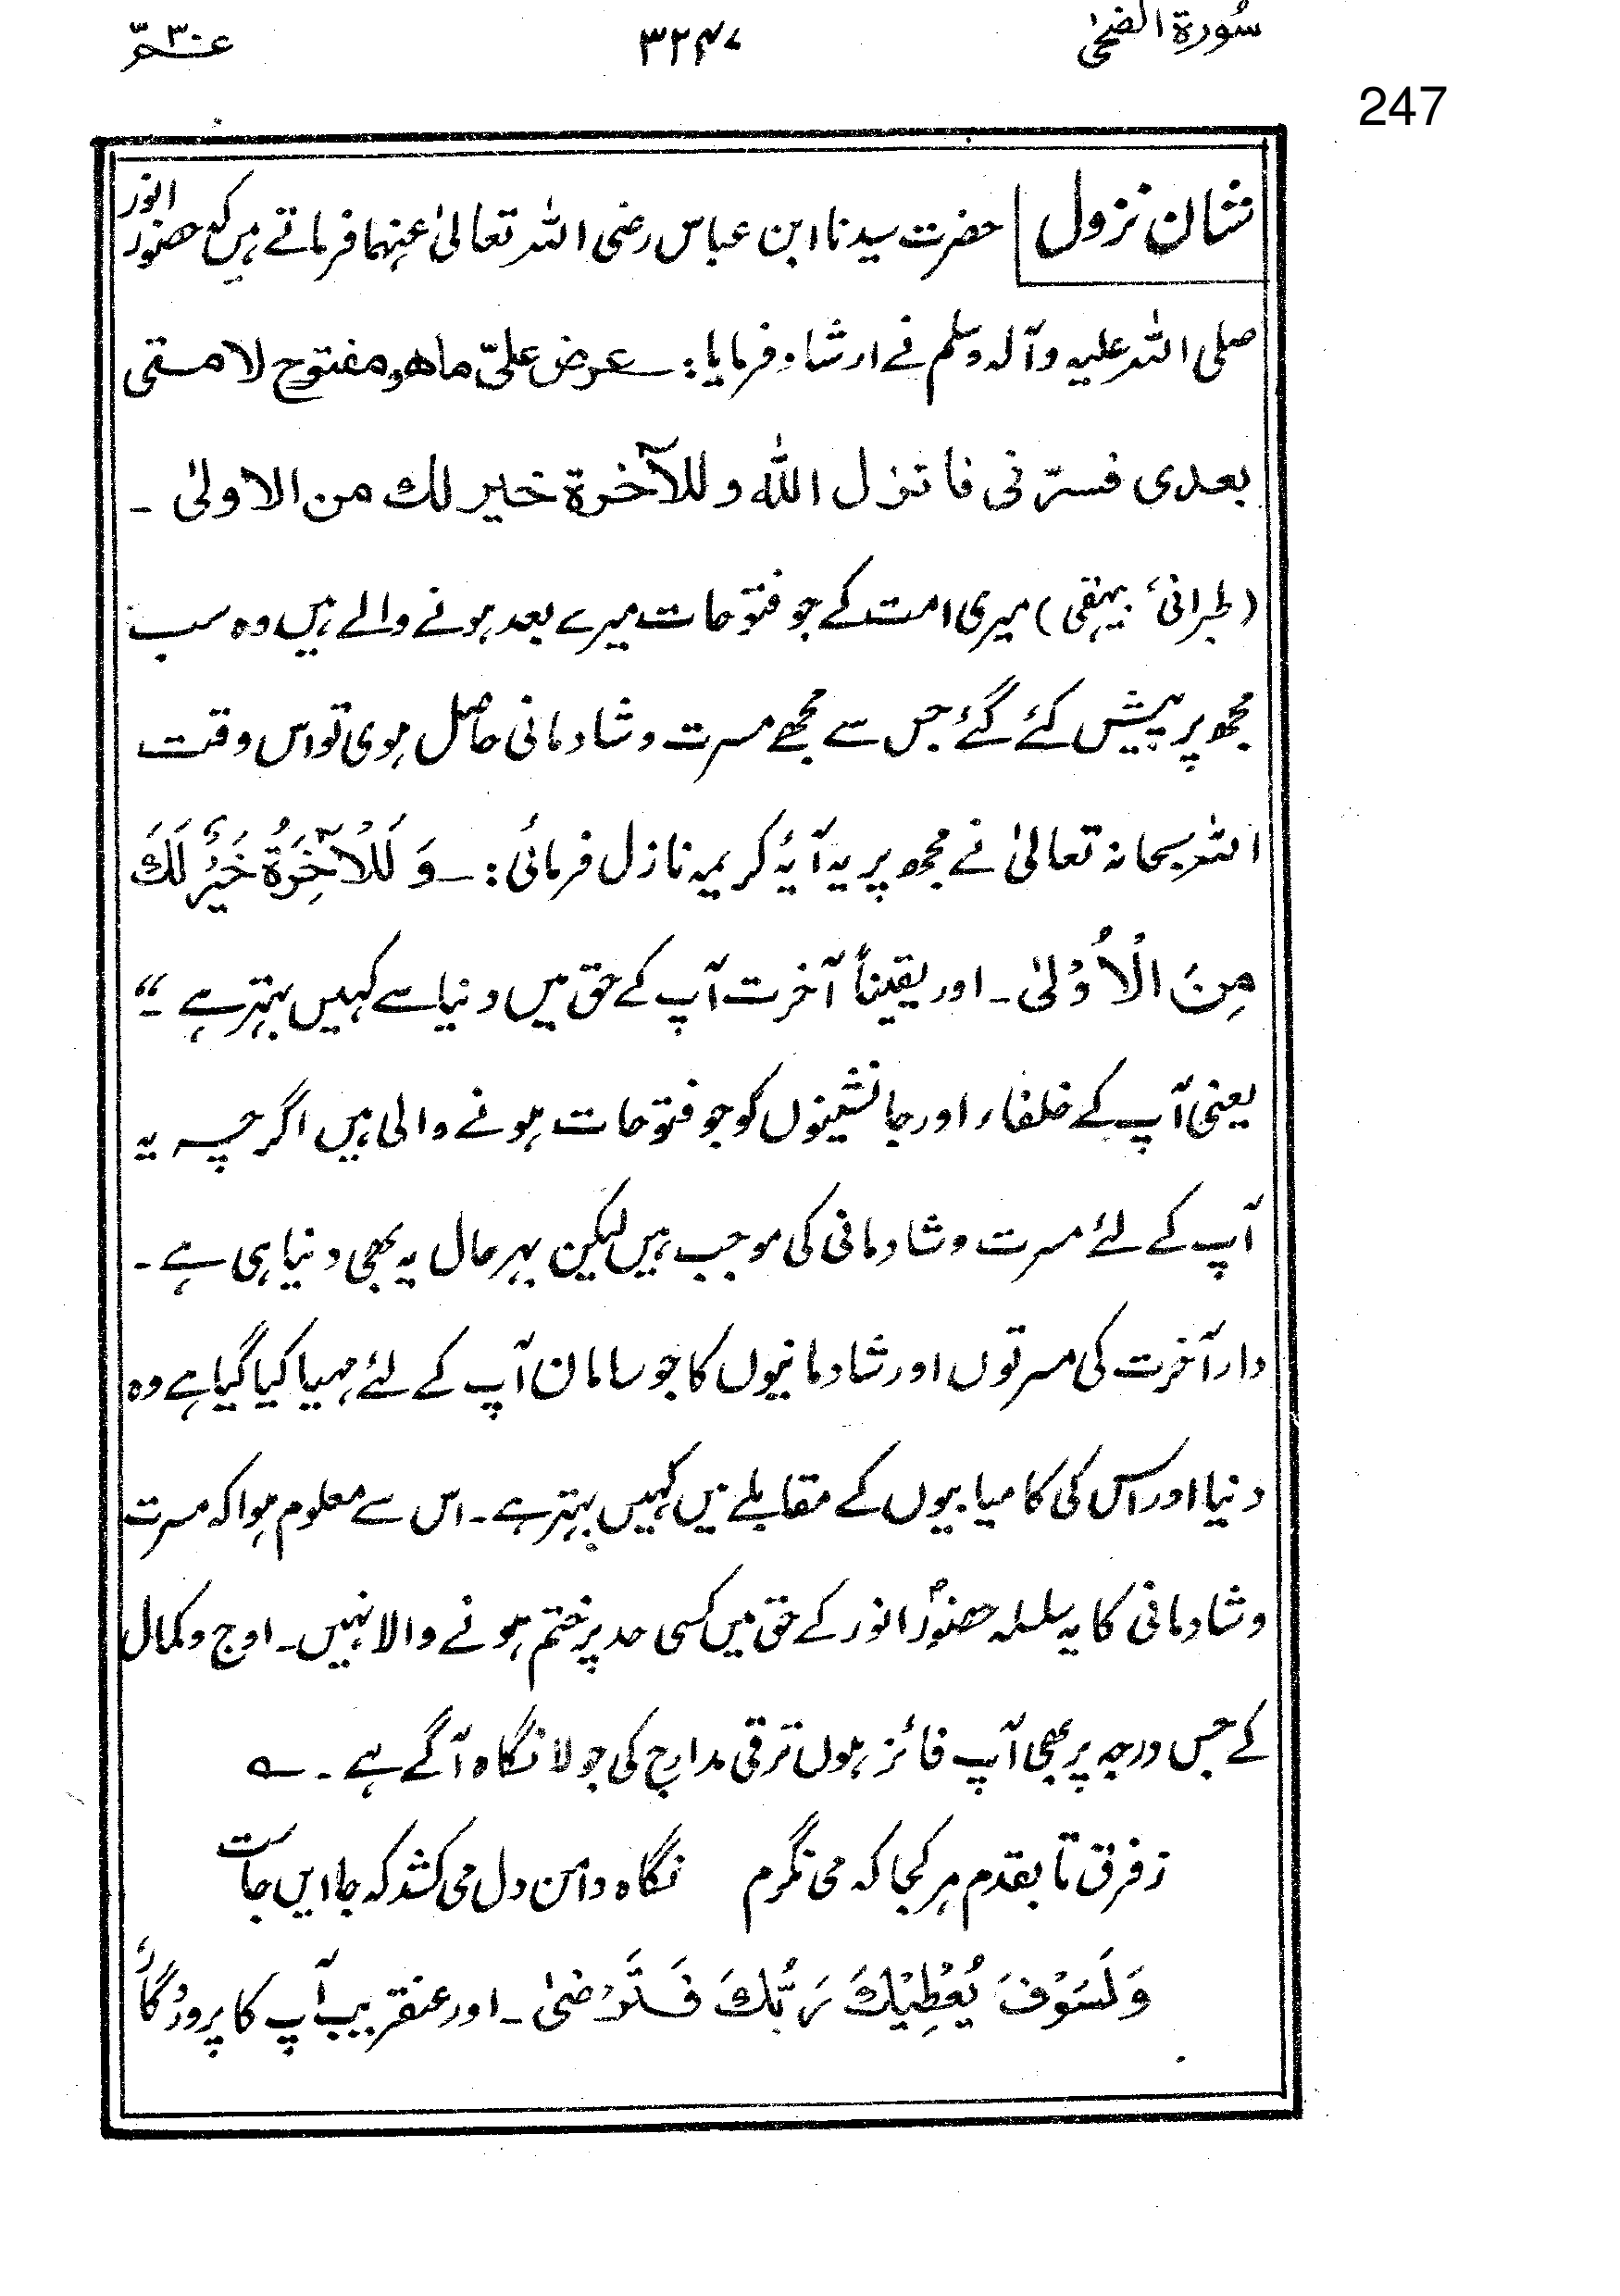 سُورة الضحیٰ
۳۲۴۷
عمّ ۳۰
247
شان نزول حضرت سیدنا ابن عباس رضی اللہ تعالیٰ عنہما فرماتے ہیں کہ حضور انور
صلی اللہ علیہ وآلہ وسلم نے ارشاد فرمایا: عرض علیّ ما هو مفتوح لامتی
بعدی فسرّنی فانزل اللہ وللآخرة خیر لك من الاولیٰ ۔
(طبرانی ٬ بیہقی) میری امت کے جو فتوحات میرے بعد ہونے والے ہیں وہ سب
مجھ پر پیش کئے گئے جس سے مجھے مسرت و شادمانی حاصل ہوی تو اس وقت
اللہ سبحانہ تعالیٰ نے مجھ پر یہ آیۂ کریمہ نازل فرمائی: وَ لَلْآخِرَةُ خَيْرٌ لَكَ
مِنَ الْأُوْلیٰ ۔ اور یقیناً آخرت آپ کے حق میں دنیا سے کہیں بہتر ہے ۔“
یعنی آپ کے خلفاء اور جانشینوں کو جو فتوحات ہونے والی ہیں اگرچہ یہ
آپ کے لئے مسرت و شادمانی کی موجب ہیں لیکن بہرحال یہ بھی دنیا ہی ہے ۔
دار آخرت کی مسرتوں اور شادمانیوں کا جو سامان آپ کے لئے مہیا کیا گیا ہے وہ
دنیا اور اس کی کامیابیوں کے مقابلے میں کہیں بہتر ہے ۔ اس سے معلوم ہوا کہ مسرت
و شادمانی کا یہ سلسلہ حضورؐ انور کے حق میں کسی حد پر ختم ہونے والا نہیں ۔ اوج و کمال
کے جس درجہ پر بھی آپ فائز ہوں ترقی مدارج کی جولانگاہ آگے ہے ۔ ؎
ز فرق تا بقدم ہر کجا کہ می نگرم نگاہ دامن دل می کشد کہ جا ایں جاست
وَلَسَوْفَ يُعْطِيْكَ رَبُّكَ فَتَرْضىٰ ۔ اور عنقریب آپ کا پروردگار